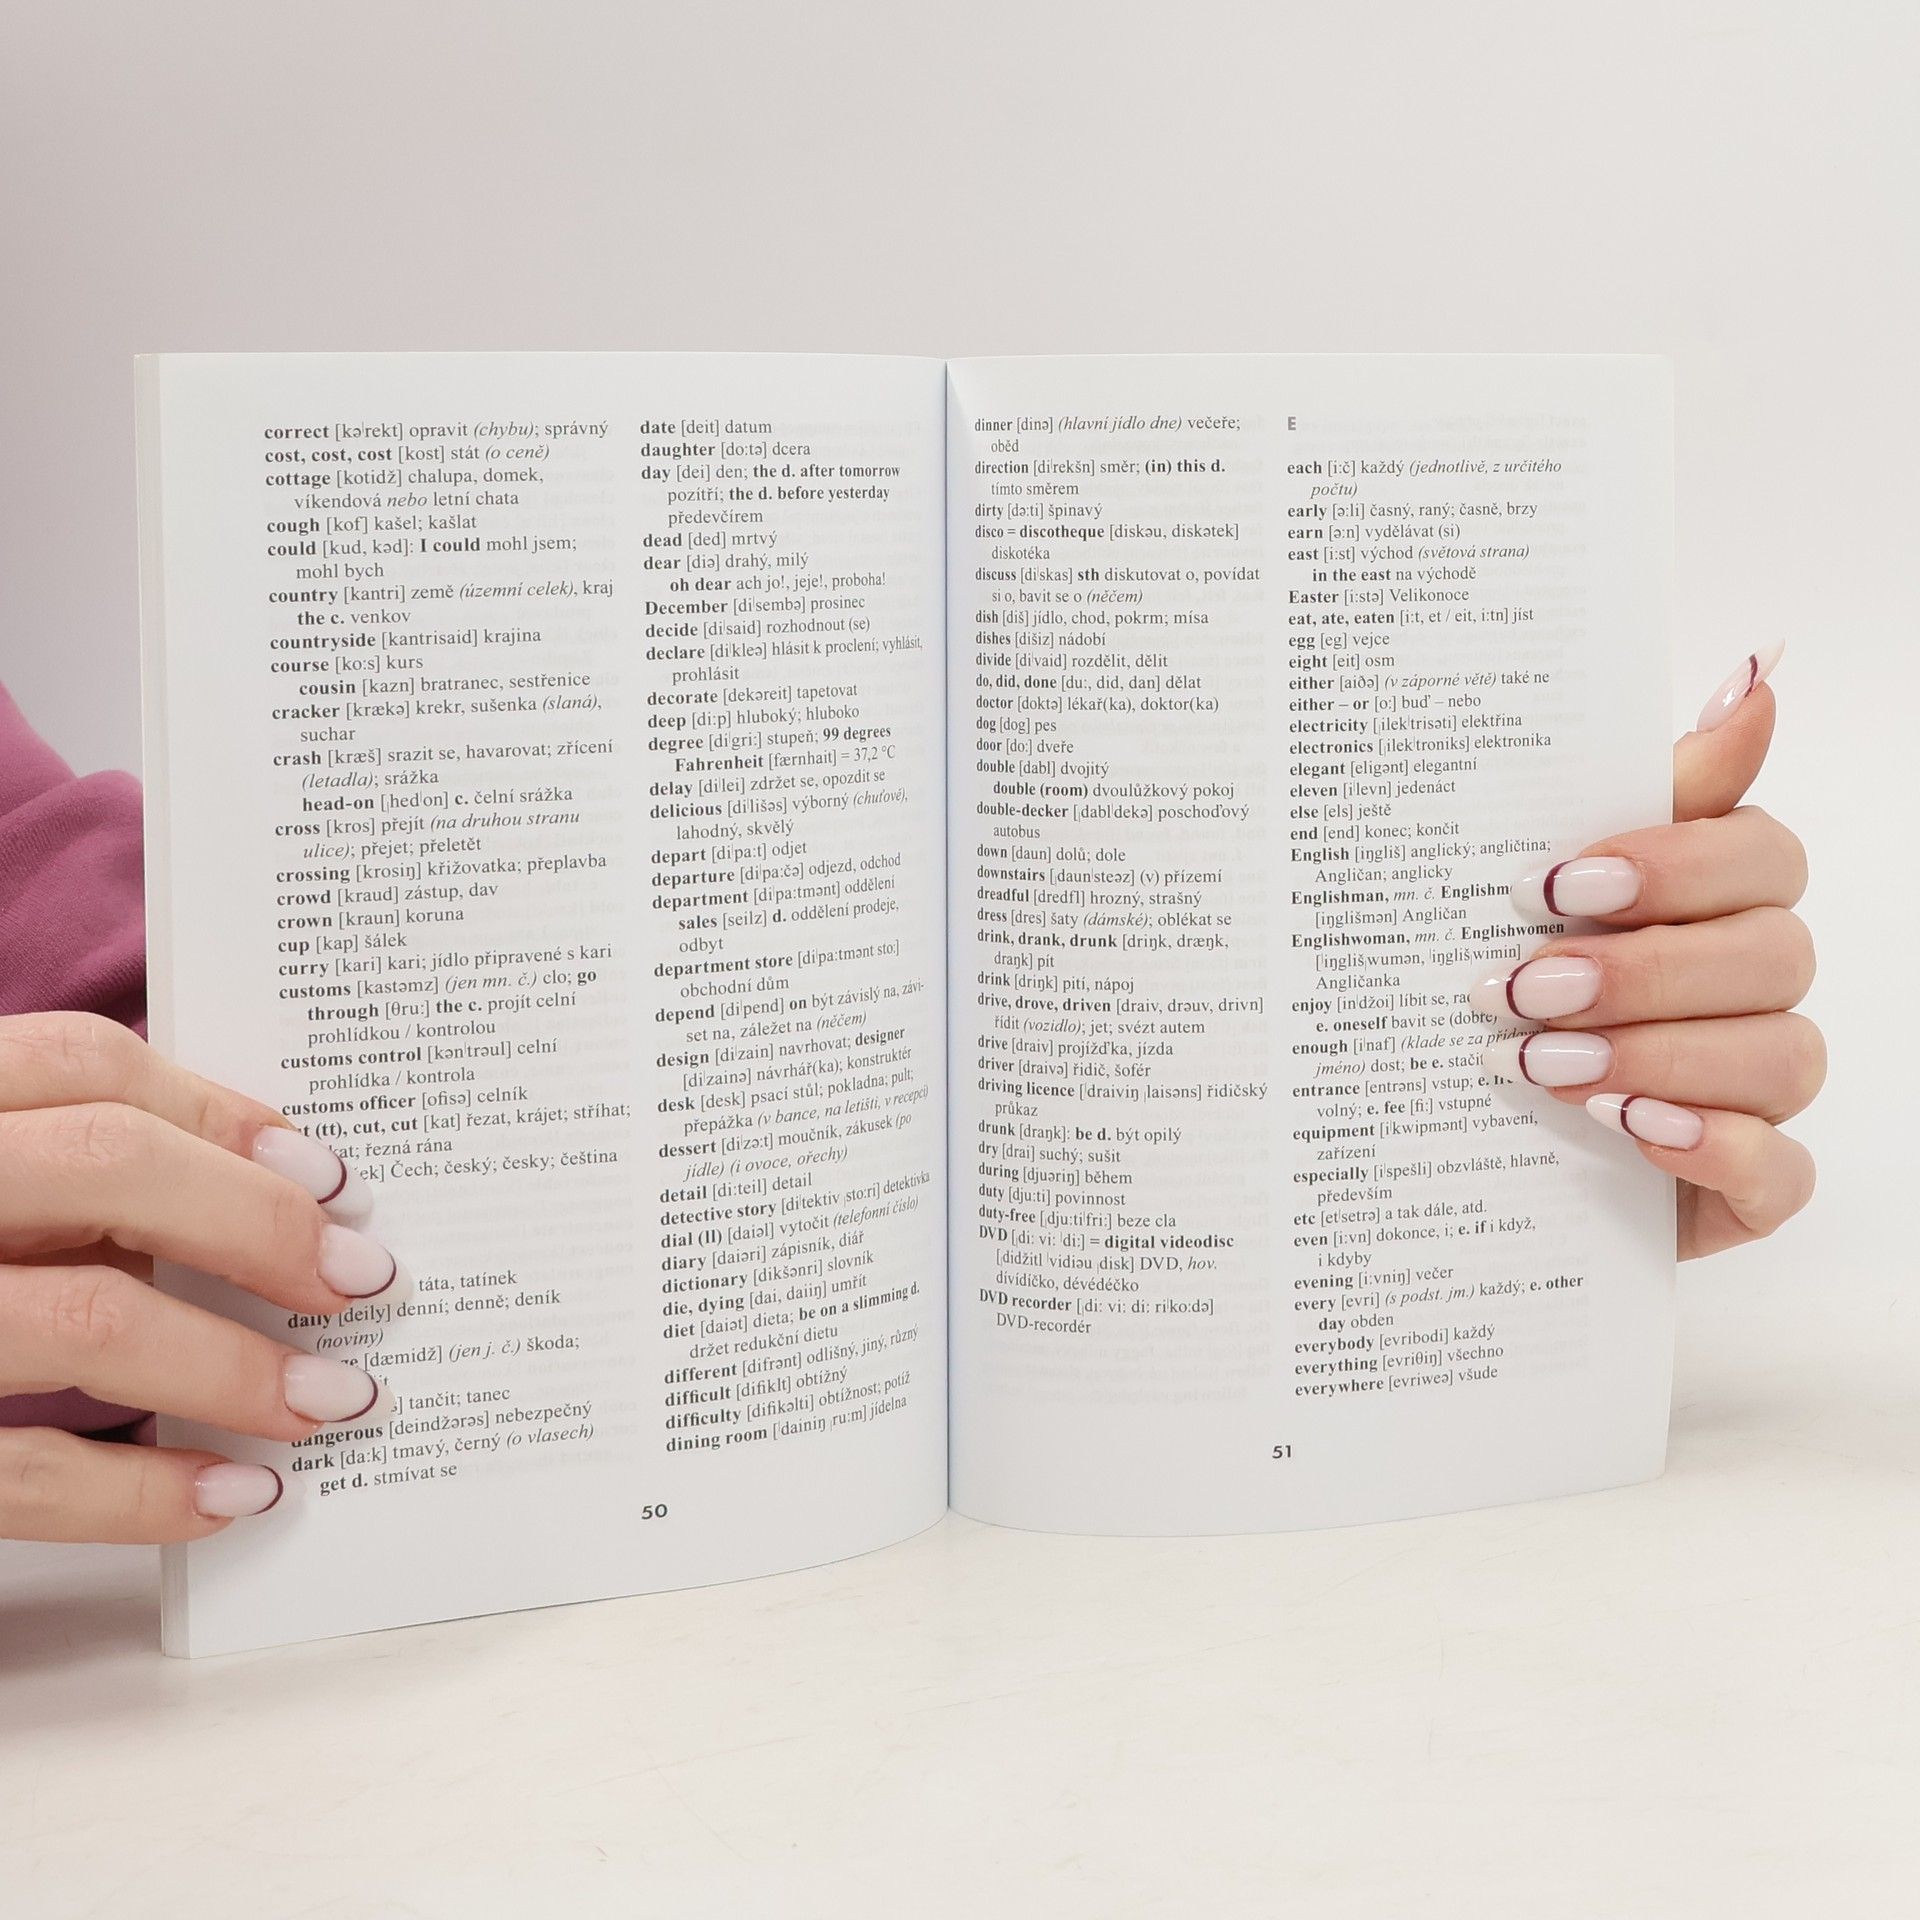 correct [kəˈrekt] opravit (chybu); správný
cost, cost, cost [kost] stát (o ceně)
cottage [kotidž] chalupa, domek,
víkendová nebo letní chata
cough [kof] kašel; kašlat
could [kud, kəd]: I could mohl jsem;
mohl bych
country [kantri] země (územní celek), kraj
the c. venkov
countryside [kantrisaid] krajina
course [ko:s] kurs
cousin [kazn] bratranec, sestřenice
cracker [krækə] krekr, sušenka (slaná),
suchar
crash [kræš] srazit se, havarovat; zřícení
(letadla); srážka
head-on [ˌhedˈon] c. čelní srážka
cross [kros] přejít (na druhou stranu
ulice); přejet; přeletět
crossing [krosiŋ] křižovatka; přeplavba
crowd [kraud] zástup, dav
crown [kraun] koruna
cup [kap] šálek
curry [kari] kari; jídlo připravené s kari
customs [kastəmz] (jen mn. č.) clo; go
through [θru:] the c. projít celní
prohlídkou / kontrolou
customs control [kənˈtrəul] celní
prohlídka / kontrola
customs officer [ofisə] celník
(tt), cut, cut [kat] řezat, krájet; stříhat;
řezná rána
Čech; český; česky; čeština
táta, tatínek
daily [deily] denní; denně; deník
(noviny)
[dæmidž] (jen j. č.) škoda;
tančit; tanec
dangerous [deindžərəs] nebezpečný
dark [da:k] tmavý, černý (o vlasech)
get d. stmívat se
50
date [deit] datum
daughter [do:tə] dcera
day [dei] den; the d. after tomorrow
pozítří; the d. before yesterday
předevčírem
dead [ded] mrtvý
dear [diə] drahý, milý
oh dear ach jo!, jeje!, proboha!
December [diˈsembə] prosinec
decide [diˈsaid] rozhodnout (se)
declare [diˈkleə] hlásit k proclení; vyhlásit,
prohlásit
decorate [dekəreit] tapetovat
deep [di:p] hluboký; hluboko
degree [diˈgri:] stupeň; 99 degrees
Fahrenheit [færnhait] = 37,2 °C
delay [diˈlei] zdržet se, opozdit se
delicious [diˈlišəs] výborný (chuťově),
lahodný, skvělý
depart [diˈpa:t] odjet
departure [diˈpa:čə] odjezd, odchod
department [diˈpa:tmənt] oddělení
sales [seilz] d. oddělení prodeje,
odbyt
department store [diˈpa:tmənt sto:]
obchodní dům
depend [diˈpend] on být závislý na, závi-
set na, záležet na (něčem)
design [diˈzain] navrhovat; designer
[diˈzainə] návrhář(ka); konstruktér
desk [desk] psací stůl; pokladna; pult;
přepážka (v bance, na letišti, v recepci)
dessert [diˈzə:t] moučník, zákusek (po
jídle) (i ovoce, ořechy)
detail [di:teil] detail
detective story [diˈtektiv ˌsto:ri] detektivka
dial (ll) [daiəl] vytočit (telefonní číslo)
diary [daiəri] zápisník, diář
dictionary [dikšənri] slovník
die, dying [dai, daiiŋ] umřít
diet [daiət] dieta; be on a slimming d.
držet redukční dietu
different [difrənt] odlišný, jiný, různý
difficult [difiklt] obtížný
difficulty [difikəlti] obtížnost; potíž
dining room [ˈdainiŋ ˌru:m] jídelna
dinner [dinə] (hlavní jídlo dne) večeře;
oběd
direction [diˈrekšn] směr; (in) this d.
tímto směrem
dirty [də:ti] špinavý
disco = discotheque [diskəu, diskətek]
diskotéka
discuss [diˈskas] sth diskutovat o, povídat
si o, bavit se o (něčem)
dish [diš] jídlo, chod, pokrm; mísa
dishes [dišiz] nádobí
divide [diˈvaid] rozdělit, dělit
do, did, done [du:, did, dan] dělat
doctor [doktə] lékař(ka), doktor(ka)
dog [dog] pes
door [do:] dveře
double [dabl] dvojitý
double (room) dvoulůžkový pokoj
double-decker [ˌdablˈdekə] poschoďový
autobus
down [daun] dolů; dole
downstairs [ˌdaunˈsteəz] (v) přízemí
dreadful [dredfl] hrozný, strašný
dress [dres] šaty (dámské); oblékat se
drink, drank, drunk [driŋk, dræŋk,
draŋk] pít
drink [driŋk] pití, nápoj
drive, drove, driven [draiv, drəuv, drivn]
řídit (vozidlo); jet; svézt autem
drive [draiv] projížďka, jízda
driver [draivə] řidič, šofér
driving licence [ˈdraiviŋ ˌlaisəns] řidičský
průkaz
drunk [draŋk]: be d. být opilý
dry [drai] suchý; sušit
during [djuəriŋ] během
duty [dju:ti] povinnost
duty-free [ˌdju:tiˈfri:] beze cla
DVD [ˌdi: vi: ˈdi:] = digital videodisc
[ˌdidžitl ˈvidiəu ˌdisk] DVD, hov.
dívídíčko, dévédéčko
DVD recorder [ˌdi: vi: di: riˈko:də]
DVD-recordér
E
each [i:č] každý (jednotlivě, z určitého
počtu)
early [ə:li] časný, raný; časně, brzy
earn [ə:n] vydělávat (si)
east [i:st] východ (světová strana)
in the east na východě
Easter [i:stə] Velikonoce
eat, ate, eaten [i:t, et / eit, i:tn] jíst
egg [eg] vejce
eight [eit] osm
either [aiðə] (v záporné větě) také ne
either – or [o:] buď – nebo
electricity [ˌilekˈtrisəti] elektřina
electronics [ˌilekˈtroniks] elektronika
elegant [eligənt] elegantní
eleven [iˈlevn] jedenáct
else [els] ještě
end [end] konec; končit
English [iŋgliš] anglický; angličtina;
Angličan; anglicky
Englishman, mn. č.
[iŋglišmən] Angličan
Englishwoman, mn. č. Englishwomen
[ˈiŋglišˌwumən, ˈiŋglišˌwimin]
Angličanka
enjoy [inˈdžoi] líbit se,
e. oneself bavit se (dobře)
enough [iˈnaf] (klade se za
jméno) dost; be e.
entrance [entrəns] vstup; e.
volný; e. fee [fi:] vstupné
equipment [iˈkwipmənt] vybavení,
zařízení
especially [iˈspešli] obzvláště, hlavně,
především
etc [etˈsetrə] a tak dále, atd.
even [i:vn] dokonce, i; e. if i když,
i kdyby
evening [i:vniŋ] večer
every [evri] (s podst. jm.) každý; e. other
day obden
everybody [evribodi] každý
everything [evriθiŋ] všechno
everywhere [evriweə] všude
51